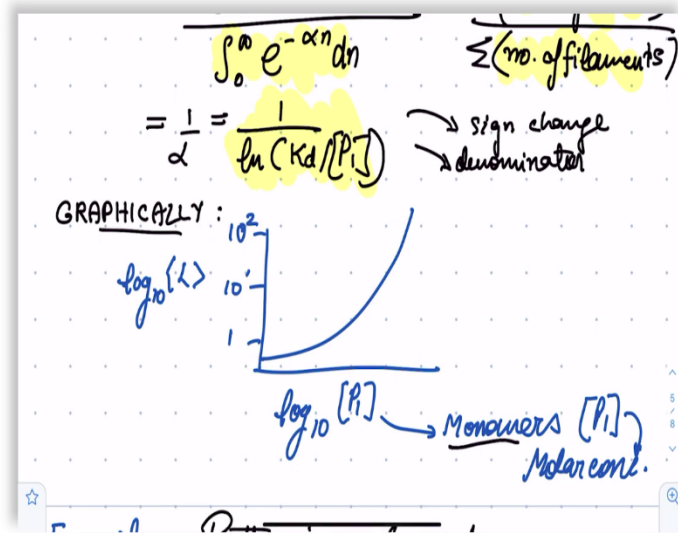 ∫₀^∞ e^{-αn} dn   Σ(no. of filaments)
= 1/α = 1/ln(Kd/[P₁])   → sign change
→ denominator
GRAPHICALLY :
10²
log₁₀⟨L⟩ 10¹
1
log₁₀ [P₁] → Monomers [P₁]
Molar conc.
5
/
8